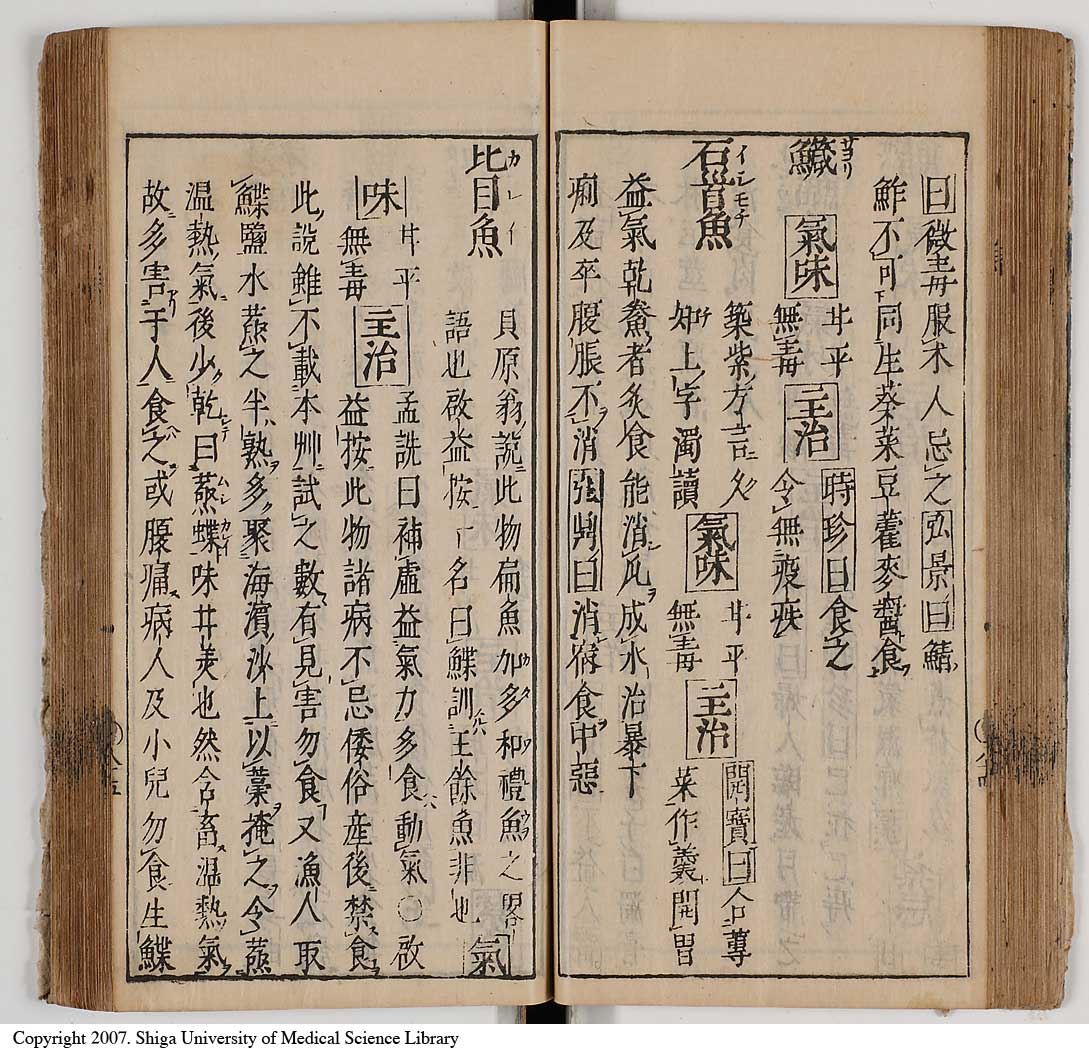 曰微毒服术人忌之弘景曰鯖
鮓不可同生葵菜豆藿麥醬食
鱵 サヨリ 氣味 甘平無毒 主治 時珍曰食之令無疫疾
石首魚 イシモチ 築紫方言久知上字濁讀 氣味 甘平無毒 主治 開寶曰合蓴菜作羹開胃
益氣乾鮝者炙食能消瓜成水治暴下
痢及卒腹脹不消 張鼎曰 消宿食中惡
比目魚 カレイ 貝原翁說此物扁魚加多和禮魚之畧
語也啟益按一名曰鰈訓王餘魚非也 氣
味 甘平無毒 主治 孟詵曰補虛益氣力多食動氣○啟
益按此物諸病不忌倭俗産後禁食
此說雖不載本艸試之數有見害勿食又漁人取
鰈鹽水蒸之半熟多聚海濱沙上以藁掩之令蒸
温熱氣後少乾曰蒸鰈 ムシカレイ 味甘美也然含畜温熱氣
故多害于人食之或腹痛病人及小兒勿食生鰈
Copyright 2007. Shiga University of Medical Science Library